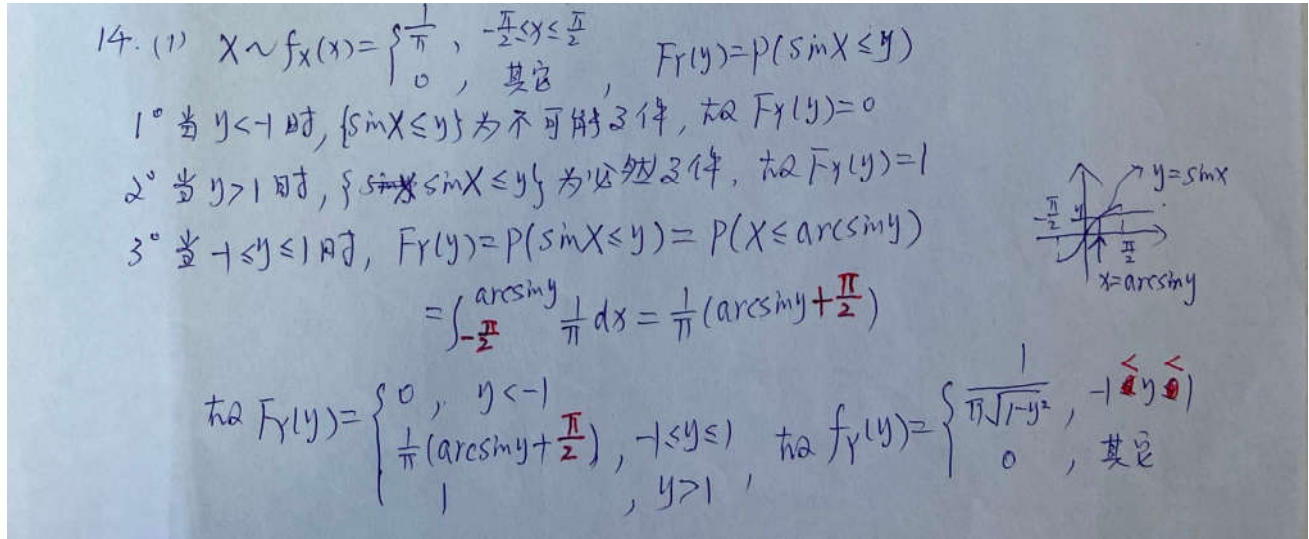 14. (1) X~f_X(x)={ 1/π , -π/2≤x≤π/2 ; 0 , 其它 , F_Y(y)=P(sinX≤y)
1° 当 y<-1 时, {sinX≤y} 为不可能事件, 故 F_Y(y)=0
2° 当 y>1 时, {sinX≤y} 为必然事件, 故 F_Y(y)=1
3° 当 -1≤y≤1 时, F_Y(y)=P(sinX≤y)=P(X≤arcsiny)
=∫_{-π/2}^{arcsiny} 1/π dx = 1/π (arcsiny+π/2)
y=sinx
-π/2 y
π/2
x=arcsiny
故 F_Y(y)={ 0 , y<-1 ; 1/π (arcsiny+π/2) , -1≤y≤1 ; 1 , y>1 , 故 f_Y(y)={ 1/(π√(1-y²)) , -1<y<1 ; 0 , 其它